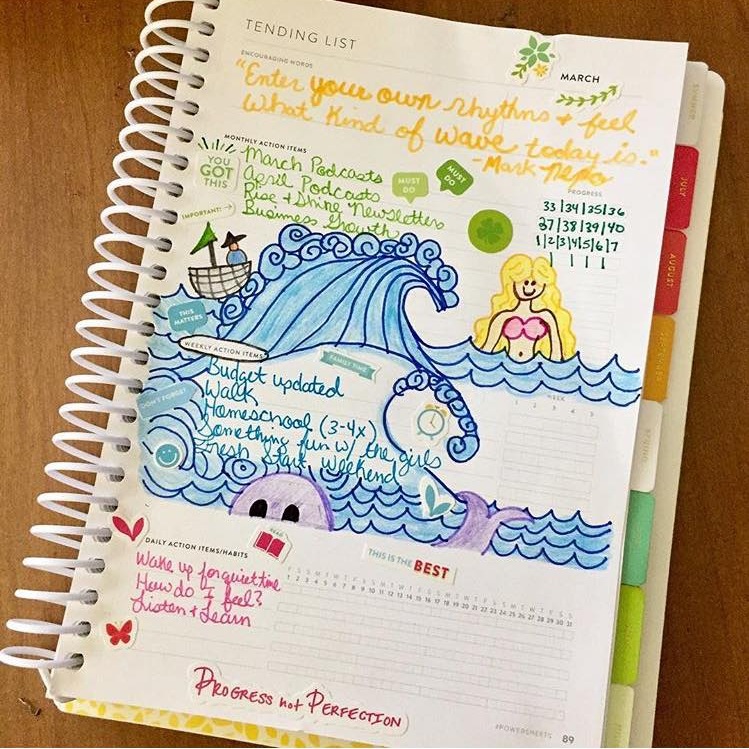 TENDING LIST
ENCOURAGING WORDS
MARCH
"Enter your own rhythms + feel
What kind of wave today is."
-Mark Nepo
MONTHLY ACTION ITEMS
PROGRESS
YOU GOT THIS
March Podcasts
MUST DO
MUST DO
April Podcasts
Rise + Shine Newsletters
IMPORTANT!
Business Growth
33|34|35|36
37|38|39|40
1|2|3|4|5|6|7
THIS MATTERS
WEEKLY ACTION ITEMS
FAMILY TIME
Budget updated
Walk
DON'T FORGET
Homeschool (3-4x)
Something fun w/ the girls
Fresh Start Weekend
WEEK
1 2 3 4 5
DAILY ACTION ITEMS/HABITS
READ
THIS IS THE BEST
Wake up for quiet time
How do I feel?
Listen + Learn
F S S M T W T F S S M T W T F S S M T W T F S S M T W T F S S
1 2 3 4 5 6 7 8 9 10 11 12 13 14 15 16 17 18 19 20 21 22 23 24 25 26 27 28 29 30 31
PROGRESS not PERFECTION
#POWERSHEETS 89
SUMMER
JULY
AUGUST
SPRING